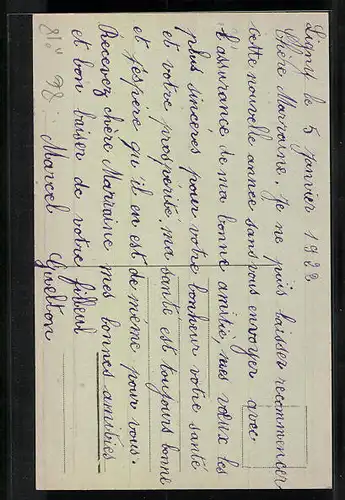 Ligny le 5 janvier 1922
Chère Marraine, Je ne puis laisser recommencer
cette nouvelle année sans vous envoyer avec
l'assurance de ma bonne amitié, mes vœux les
plus sincères pour votre bonheur votre santé
et votre prospérité, ma santé est toujours bonne
et j'espère qu'il en est de même pour vous.
Recevez chère Marraine mes bonnes amitiés
et bon baiser de votre filleul
Marcel